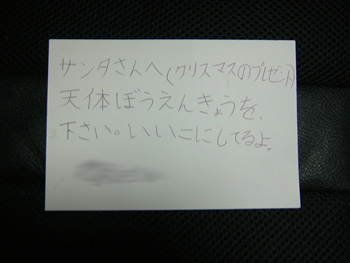 サンタさんへ(クリスマスのプレゼント)
天体ぼうえんきょうを、
下さい。いいこにしてるよ。